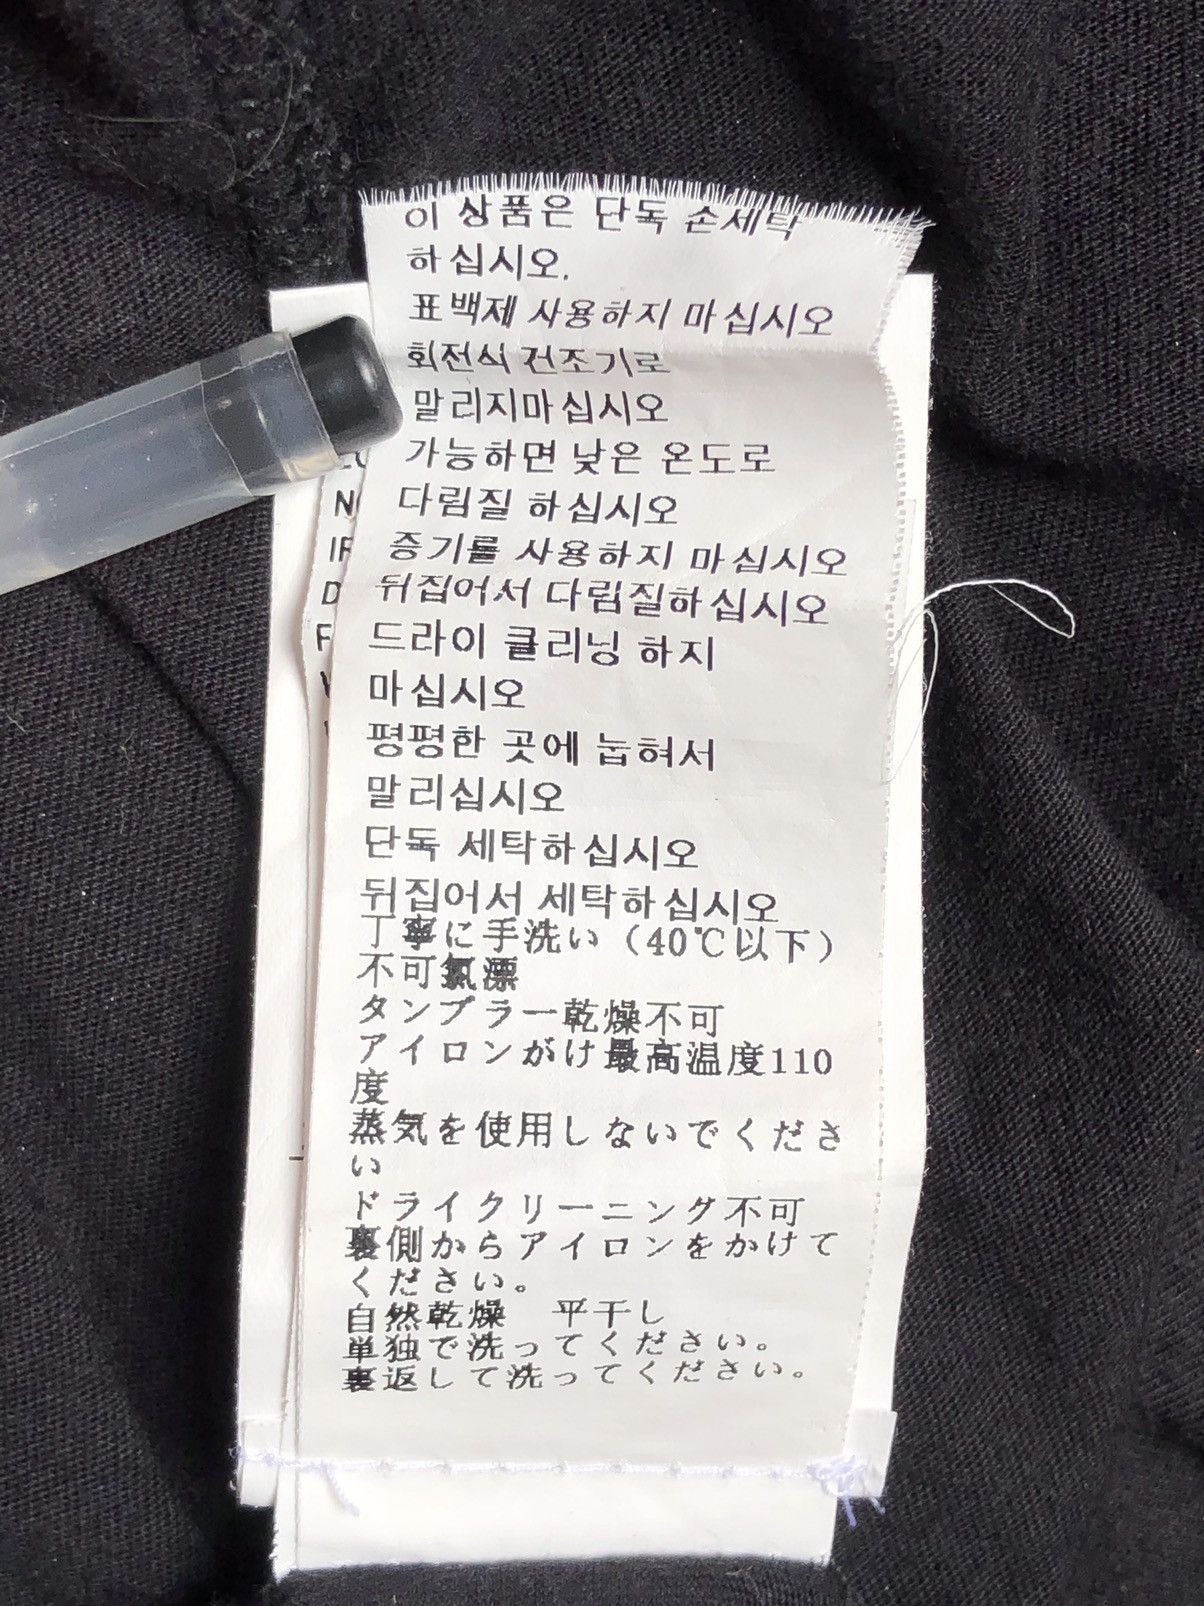 이 상품은 단독 손세탁
하십시오.
표백제 사용하지 마십시오
회전식 건조기로
말리지마십시오
가능하면 낮은 온도로
다림질 하십시오
증기를 사용하지 마십시오
뒤집어서 다림질하십시오
드라이 클리닝 하지
마십시오
평평한 곳에 눕혀서
말리십시오
단독 세탁하십시오
뒤집어서 세탁하십시오
丁寧に手洗い（40℃以下）
不可氯漂
タンブラー乾燥不可
アイロンがけ最高温度110
度
蒸気を使用しないでくださ
い
ドライクリーニング不可
裏側からアイロンをかけて
ください。
自然乾燥　平干し
単独で洗ってください。
裏返して洗ってください。